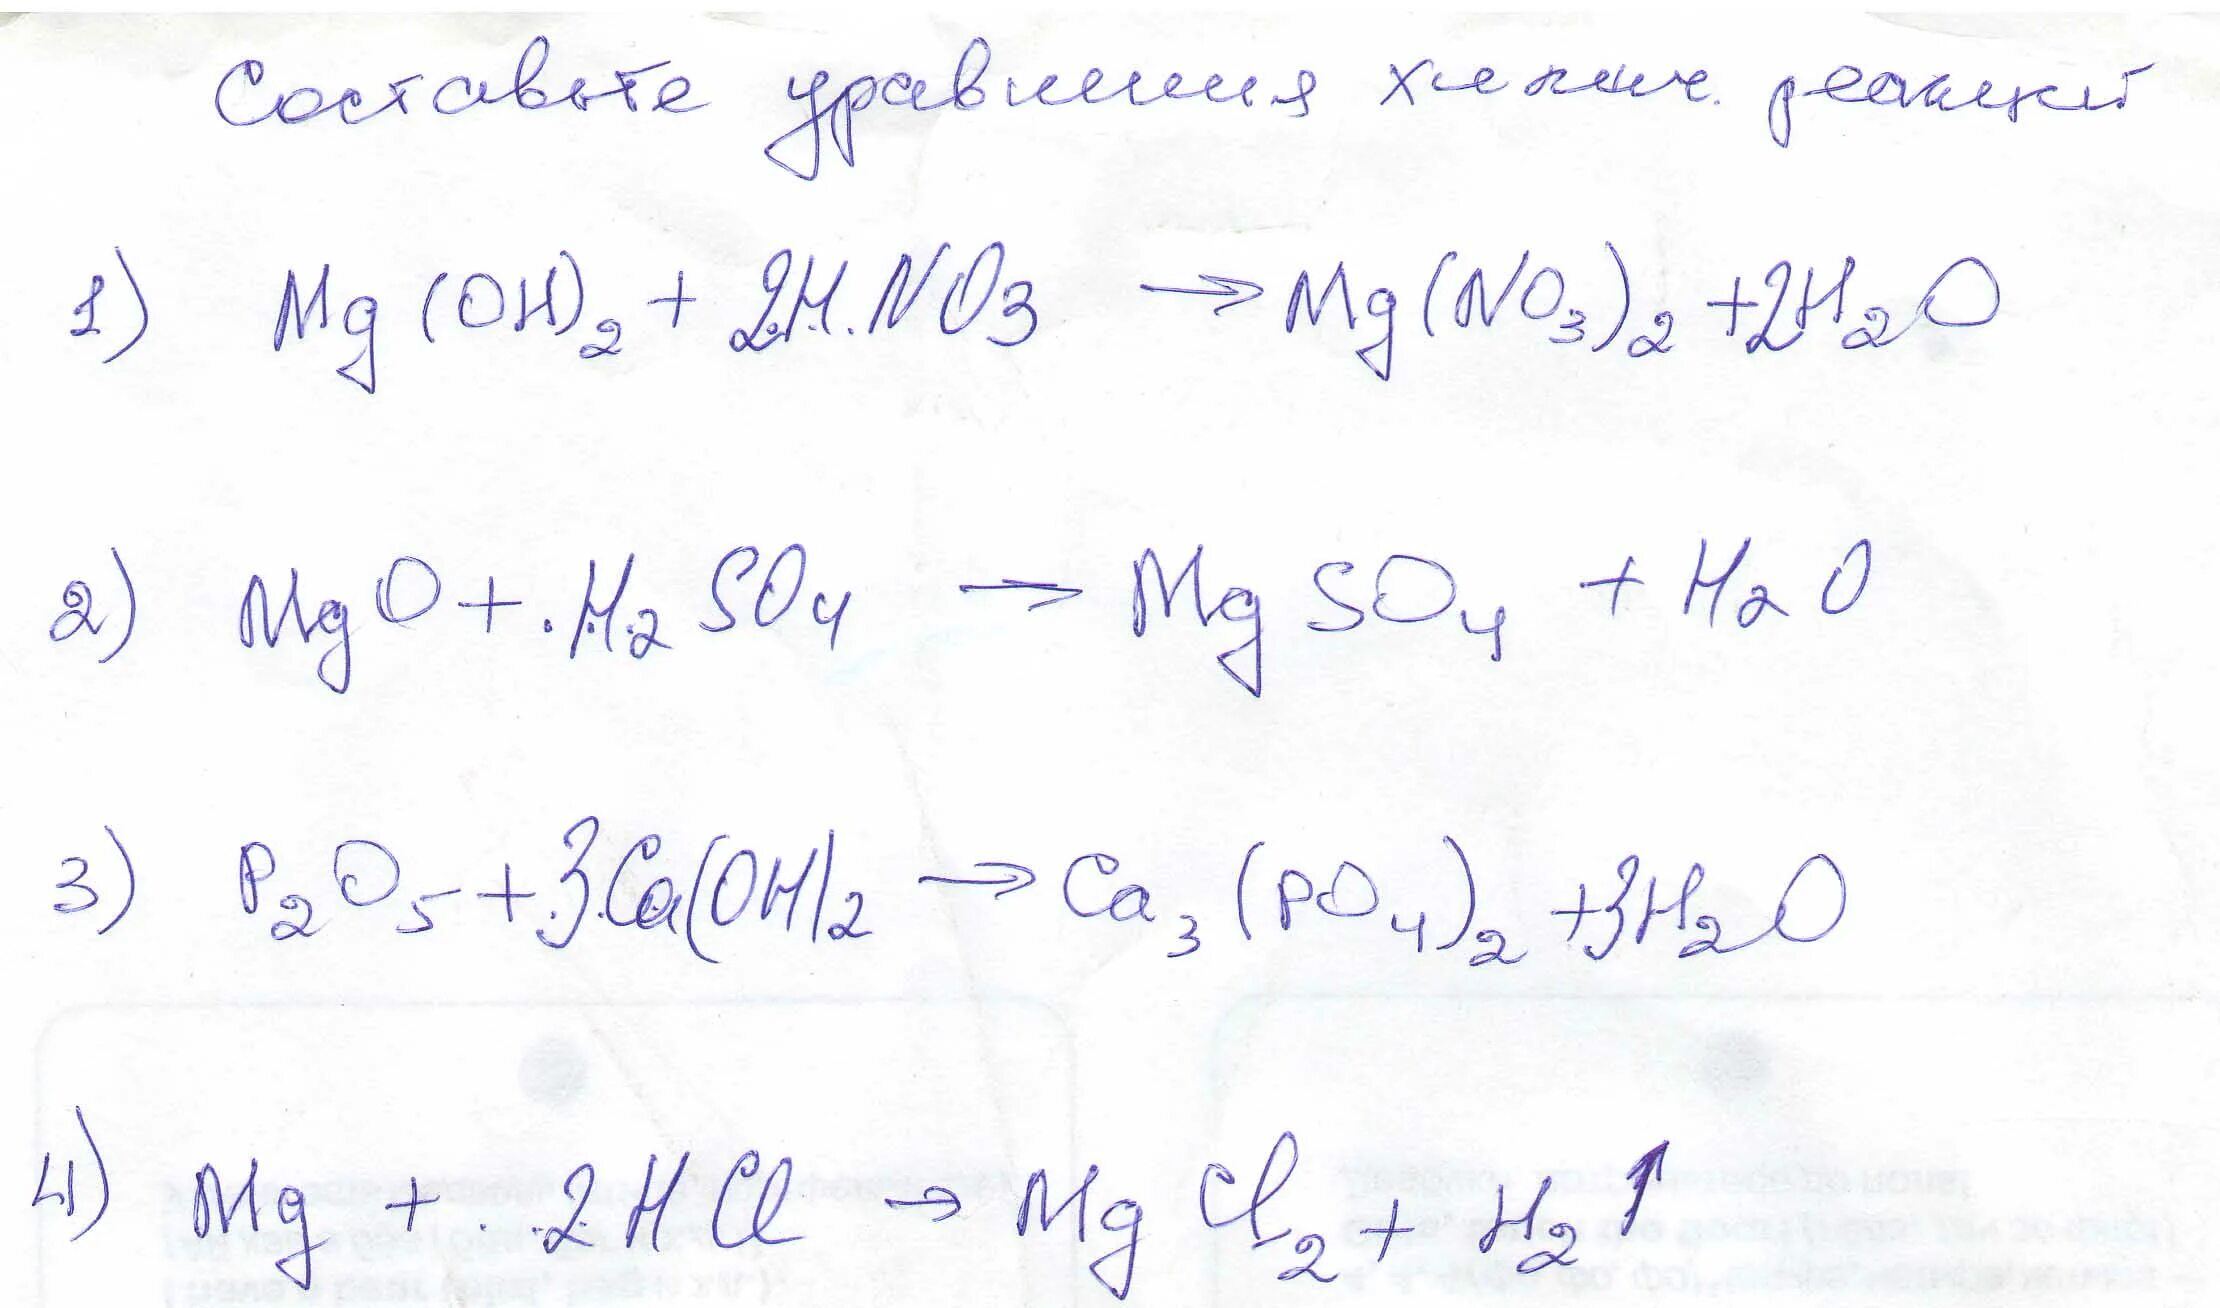 Составьте уравнения химич. реакций
1) Mg(OH)₂ + 2H.NO3 → Mg(NO₃)₂ + 2H₂O
2) MgO + .H.₂SO₄ → MgSO₄ + H₂O
3) P₂O₅ + 3Ca(OH)₂ → Ca₃(PO₄)₂ + 3H₂O
4) Mg + ..2HCl → MgCl₂ + H₂↑